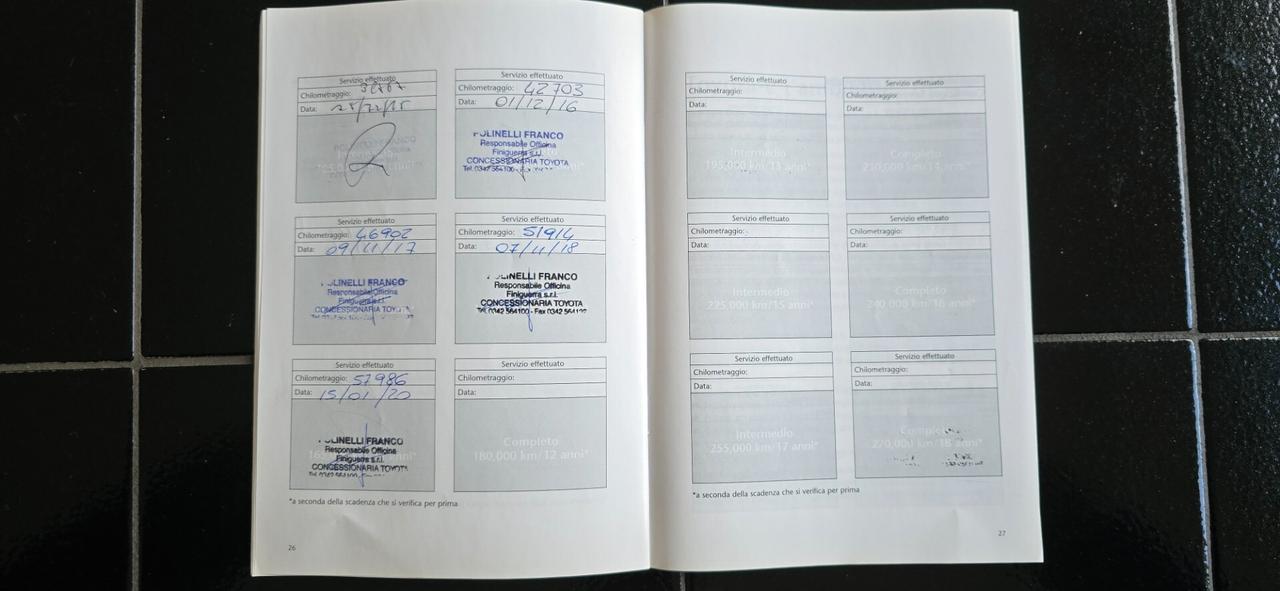 Servizio effettuato
Chilometraggio:
Data:
Servizio effettuato
Chilometraggio: 42703
Data: 01/12/16
POLINELLI FRANCO
Responsabile Officina
Finiguerra s.r.l.
CONCESSIONARIA TOYOTA
Tel. 0342 564100 - Fax
Servizio effettuato
Chilometraggio: 46902
Data: 09/11/17
POLINELLI FRANCO
Responsabile Officina
Finiguerra s.r.l.
CONCESSIONARIA TOYOTA
Servizio effettuato
Chilometraggio: 51914
Data: 07/11/18
POLINELLI FRANCO
Responsabile Officina
Finiguerra s.r.l.
CONCESSIONARIA TOYOTA
Tel. 0342 564100 - Fax 0342 564122
Servizio effettuato
Chilometraggio: 57986
Data: 15/01/20
POLINELLI FRANCO
Responsabile Officina
Finiguerra s.r.l.
CONCESSIONARIA TOYOTA
Servizio effettuato
Chilometraggio:
Data:
Completo
180,000 km/12 anni*
*a seconda della scadenza che si verifica per prima
26
Servizio effettuato
Chilometraggio:
Data:
Intermedio
195,000 km/13 anni*
Servizio effettuato
Chilometraggio:
Data:
Completo
210,000 km/14 anni*
Servizio effettuato
Chilometraggio:
Data:
Intermedio
225,000 km/15 anni*
Servizio effettuato
Chilometraggio:
Data:
Completo
240,000 km/16 anni*
Servizio effettuato
Chilometraggio:
Data:
Intermedio
255,000 km/17 anni*
Servizio effettuato
Chilometraggio:
Data:
Completo
270,000 km/18 anni*
*a seconda della scadenza che si verifica per prima
27